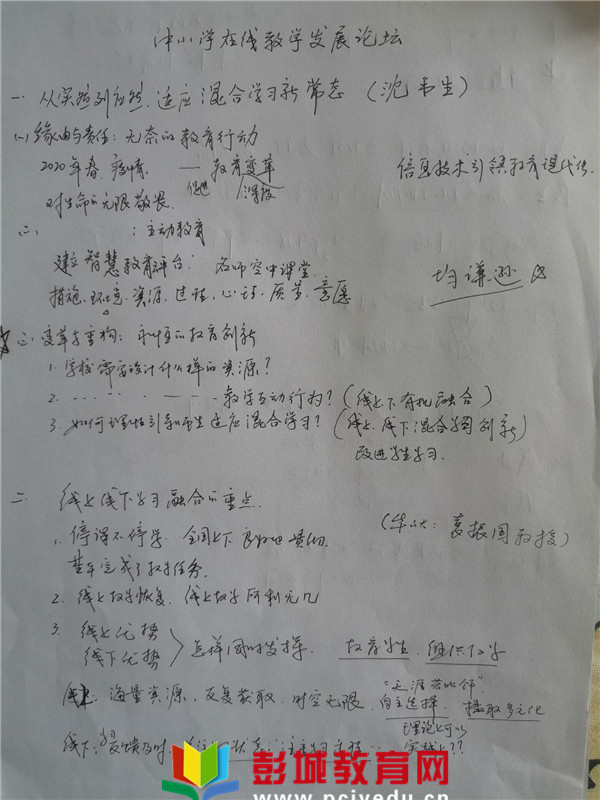 中小学在线教学发展论坛
一. 从实然到应然,适应混合学习新常态 (沈书生)
(一)缘由与责任: 无奈的教育行动
2020年春 疫情 —— 教育变革
信息技术引领教育现代化.
对生命的无限敬畏.
(二、 : 主动教育
建立智慧教育平台: 名师空中课堂.
措施、环境、资源、过程、心诗、质量、意愿
均谦逊
(三) 变革与重构: 永恒的教育创新
1. 学校需要设计什么样的资源?
2. ‥ ‥ — — — 教学互动行为? (线上下有机融合)
3. 如何理性引导师生适应混合学习? (线上.线下混合学习创新)
改进学生学习.
二 线上线下学习融合的重点.
1. 停课不停学. 全国上下良好地贯彻.
(华师大: 教授)
基本完成了教学任务.
2. 线上教学恢复. 线上教学所剩无几
3. 线上优势
线下优势
怎样同时发挥. 教育学生. 组织教学
线上. 海量资源, 反复获取, 时空无限.
"天涯若比邻"
自主选择. 摄取多元化
理论上可以
线下. 反馈及时.
实践上??
彭城教育网
www.pcjyedu.cn